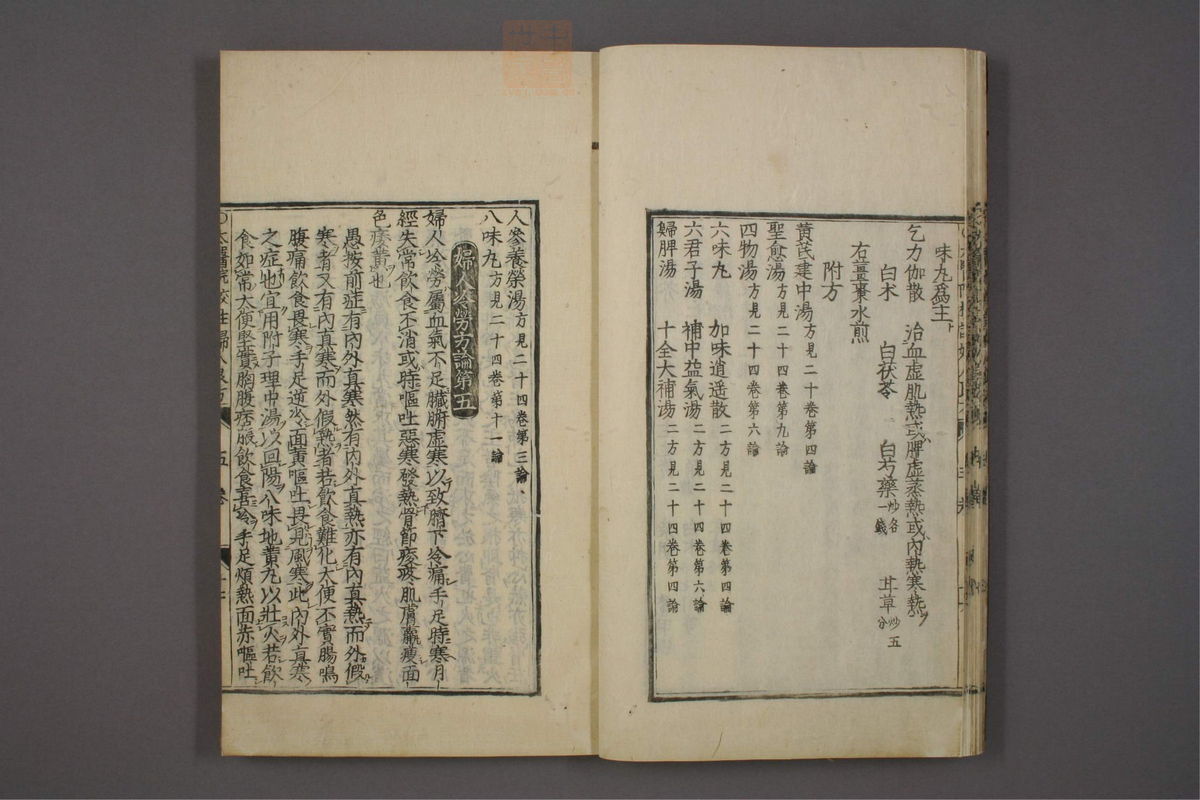 味丸爲主
乞力伽散　治血虚肌熱或脾虚蒸熱或內熱寒熱
白术　白茯苓　白芍藥炒各一錢　甘草炒五分
右薑棗水煎
附方
黃芪建中湯方見二十卷第四論
聖愈湯方見二十四卷第九論
四物湯方見二十四卷第六論
六味丸　加味逍遥散二方見二十四卷第四論
六君子湯　補中益氣湯二方見二十四卷第六論
歸脾湯　十全大補湯二方見二十四卷第四論
人參養榮湯方見二十四卷第三論
八味丸方見二十四卷第十一論
婦人冷勞方論第五
婦人冷勞屬血氣不足臟腑虚寒以致臍下冷痛手足時寒月
經失常飲食不消或時嘔吐惡寒發熱骨節痠疼肌膚羸瘦面
色痿黃也
愚按前症有內外真寒然有內外真熱亦有內真熱而外假
寒者又有內真寒而外假熱者若飲食難化大便不實腸鳴
腹痛飲食畏寒手足逆冷面黃嘔吐畏見風寒此內外真寒
之症也宜用附子理中湯以回陽八味地黃丸以壯火若飲
食如常大便堅實胸腹痞脹飲食喜冷手足煩熱面赤嘔吐